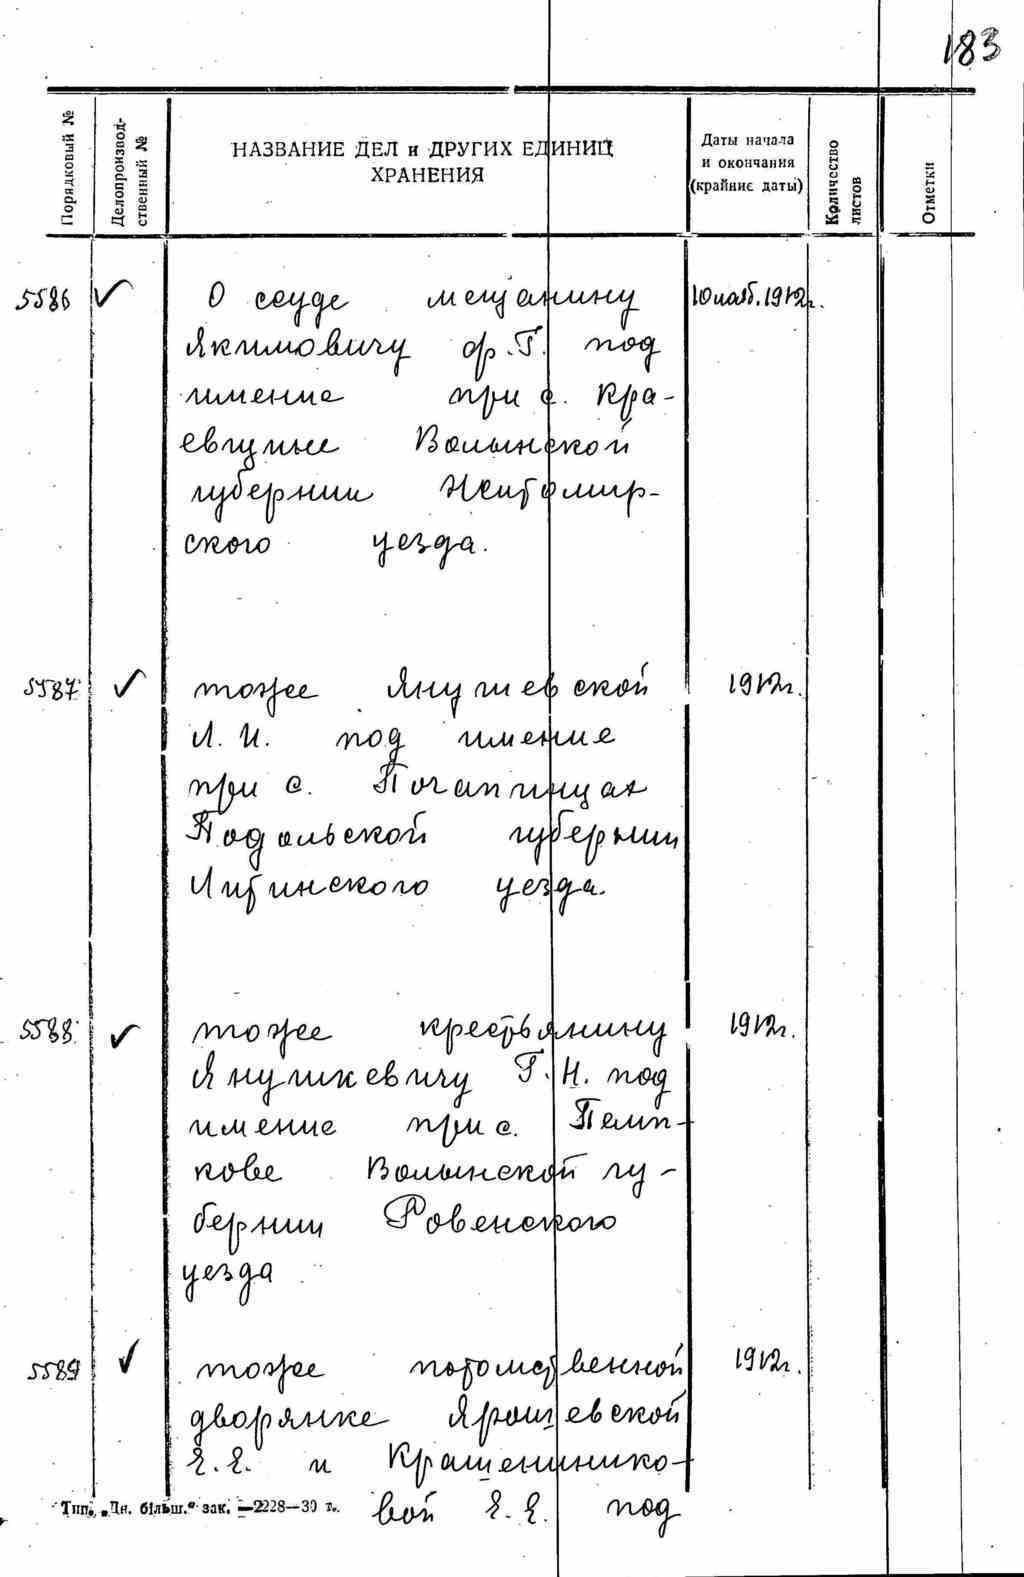 183
Порядковый №
Делопроизвод-
ственный №
НАЗВАНИЕ ДЕЛ и ДРУГИХ ЕДИНИЦ
ХРАНЕНИЯ
Даты начала
и окончания
(крайние даты)
Количество
листов
Отметки
5586 ✓ О ссуде мещанину 10 нояб. 1912г.
Якимовичу Ф.Г. под
имение при с. Кра-
евщине Волынской
губернии Житомир-
ского уезда.
5587 ✓ тоже Янушевской 1912г.
Л. И. под имение
при с. Погапинцах
Подольской губернии
Литинского уезда.
5588 ✓ тоже крестьянину 1912г.
Янушкевичу Г. Н. под
имение при с.
кове Волынской гу-
бернии Ровенского
уезда
5589 ✓ тоже потомственной 1912г.
дворянке Ярошевской
Е. Е. и Крашенинико-
вой Е. Е. под
Тип. „Дн. більш.“ зак. —2228—39 т.